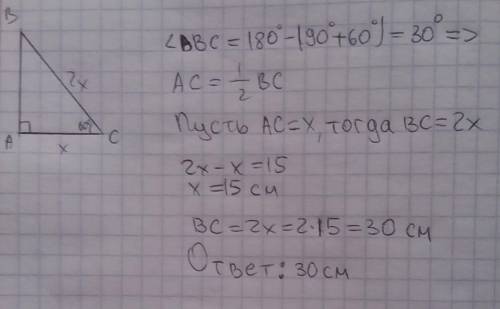 B
2x
60°
A
x
C
∠ABC = 180° - (90° + 60°) = 30° =>
AC = 1/2 BC
Пусть AC = x, тогда BC = 2x
2x - x = 15
x = 15 см
BC = 2x = 2·15 = 30 см
Ответ: 30 см